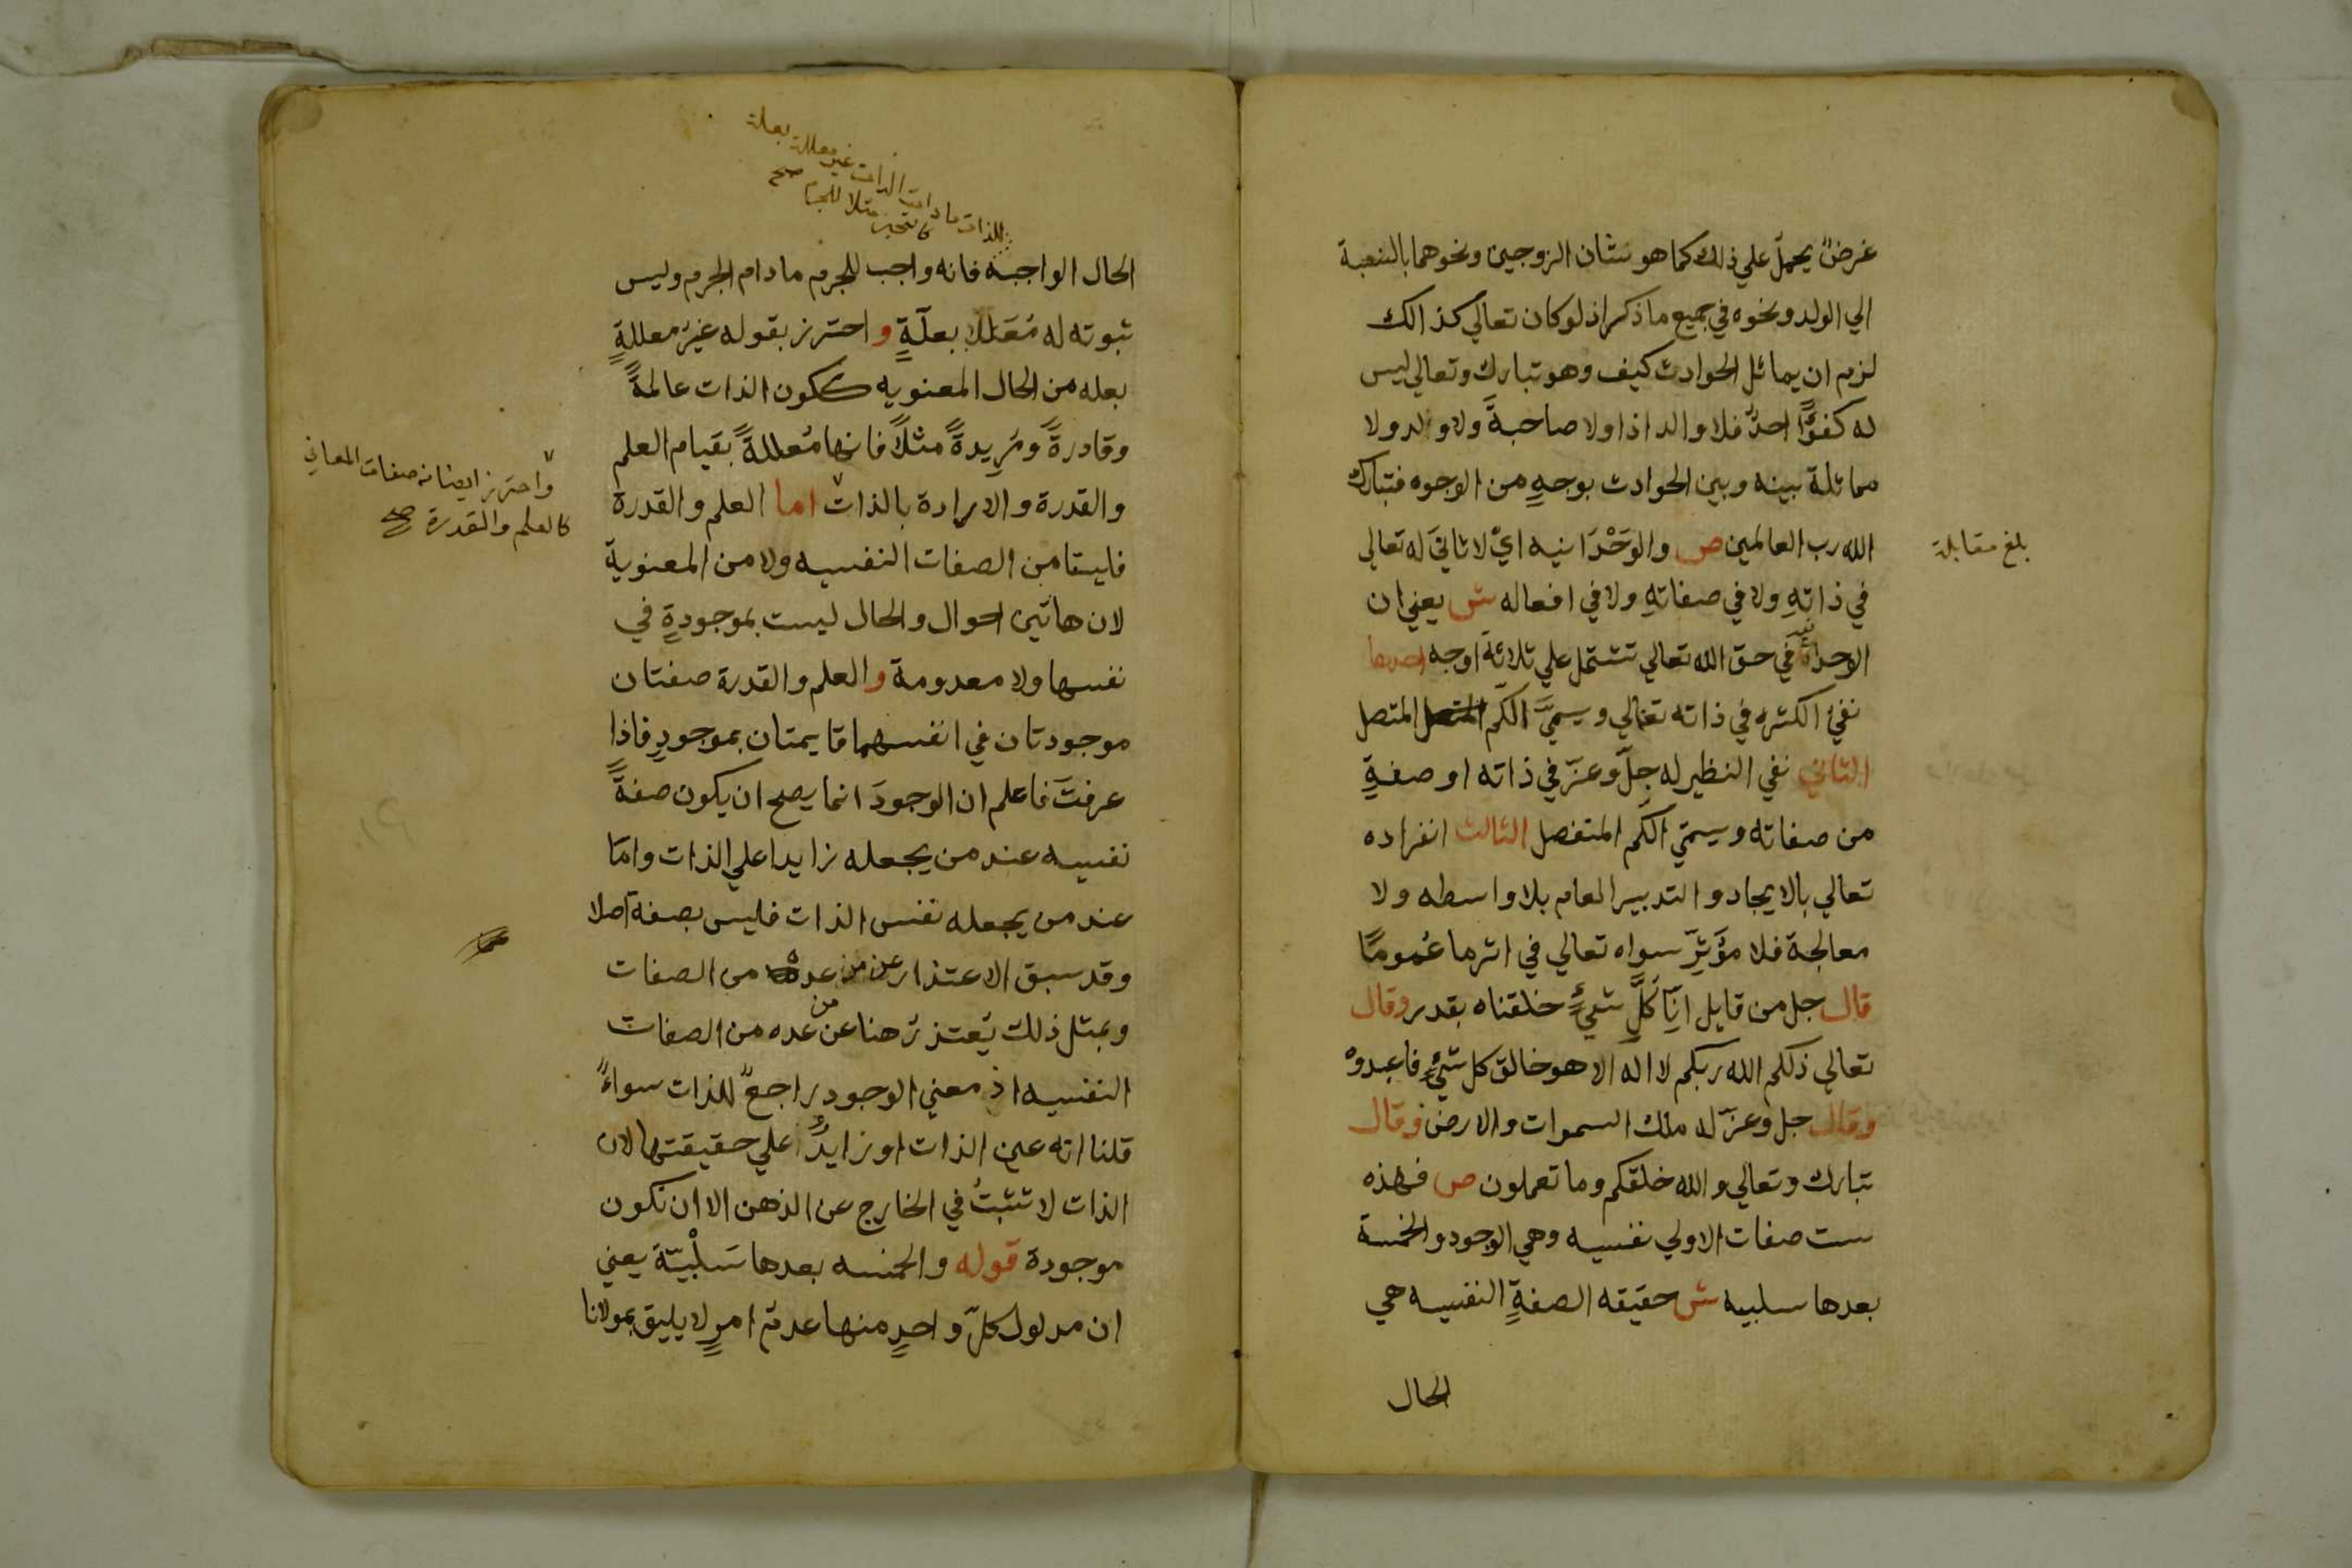 غرضٌ يحمل علي ذلك كما هو شان الزوجين ونحوهما بالنسبة
الي الولد ونحوه في جميع ما ذكر اذ لو كان تعالي كذالك
لزم ان يماثل الحوادث كيف وهو تبارك وتعالي ليس
له كفوًا احدٌ فلا والد اذا ولا صاحبةً ولا ولد ولا
مماثلة بينه وبين الحوادث بوجهٍ من الوجوه فتبارك
الله رب العالمين ص والوَحْدَانيه اي لا ثاني له تعالي
بلغ مقابلة
في ذاتهِ ولا في صفاتهِ ولا في افعاله ش يعني ان
في حق الله تعالي تشتمل علي ثلاثة اوجه احدها
نفي الكثره في ذاته تعالي ويسمي الكم المتصل
الثاني نفي النظير له جلّ وعزّ في ذاته او صفةٍ
من صفاته ويسمّي الكم المتفصل الثالث انفراده
تعالي بالايجاد والتدبير العام بلا واسطه ولا
معالجة فلا مؤثرّ سواه تعالي في اثر ما عُمومًا
قال جل من قايل انّا كلَّ شيءٍ خلقناه بقدر وقال
تعالي ذلكم الله ربكم لا اله الا هو خالق كل شيءٍ فاعبدوهْ
وقال جل وعزّ له ملك السموات والارض وقال
تبارك وتعالي والله خلقكم وما تعملون ص فهذه
ست صفات الاولي نفسيه وهي الوجود والخمسة
بعدها سلبيه ش حقيقه الصفةٍ النفسيه هي
الحال
للذات ما دامت الذات غير معللة بعلة
كالتحيز مثلا للجرم صح
الحال الواجبه فانه واجب للجرم ما دام الجرم وليس
ثبوته له مُعَللا بعلّةٍ واحترز بقوله غيرُ معللةٍ
بعله من الحال المعنويه ككون الذات عالمةً
وقادرةً ومُرِيدةً مثلاً فانها مُعللةً بقيام العلم
والقدرة والارادة بالذات اما العلم والقدرة
واحترز ايضا من صفات المعاني
كالعلم والقدرة صح
فليستا من الصفات النفسيه ولا من المعنوية
لان هاتين احوال والحال ليست بموجودةٍ في
نفسها ولا معدومة والعلم والقدرة صفتان
موجودتان في انفسهما قايمتان بموجودٍ فاذا
عرفتَ فاعلم ان الوجودَ انما يصح ان يكون صفةً
نفسيه عند من يجعله زايدا علي الذات وامّا
عند من يجعله نفس الذات فليس بصفة اصلا
وقد سبق الاعتذار عن من عده من الصفات
وبمثل ذلك يُعتذر هنا عن من عده من الصفات
النفسيه اذ معني الوجود راجعٌ للذات سواءً
قلنا انه عين الذات او زايدٌ علي حقيقتها لان
الذات لا تثبتُ في الخارج عن الذهن الا ان تكون
موجودة قوله والخمسه بعدها سَلْبيّة يعني
ان مدلول كلّ واحدٍ منها عدمُ امرٍ لا يليق بمولانا